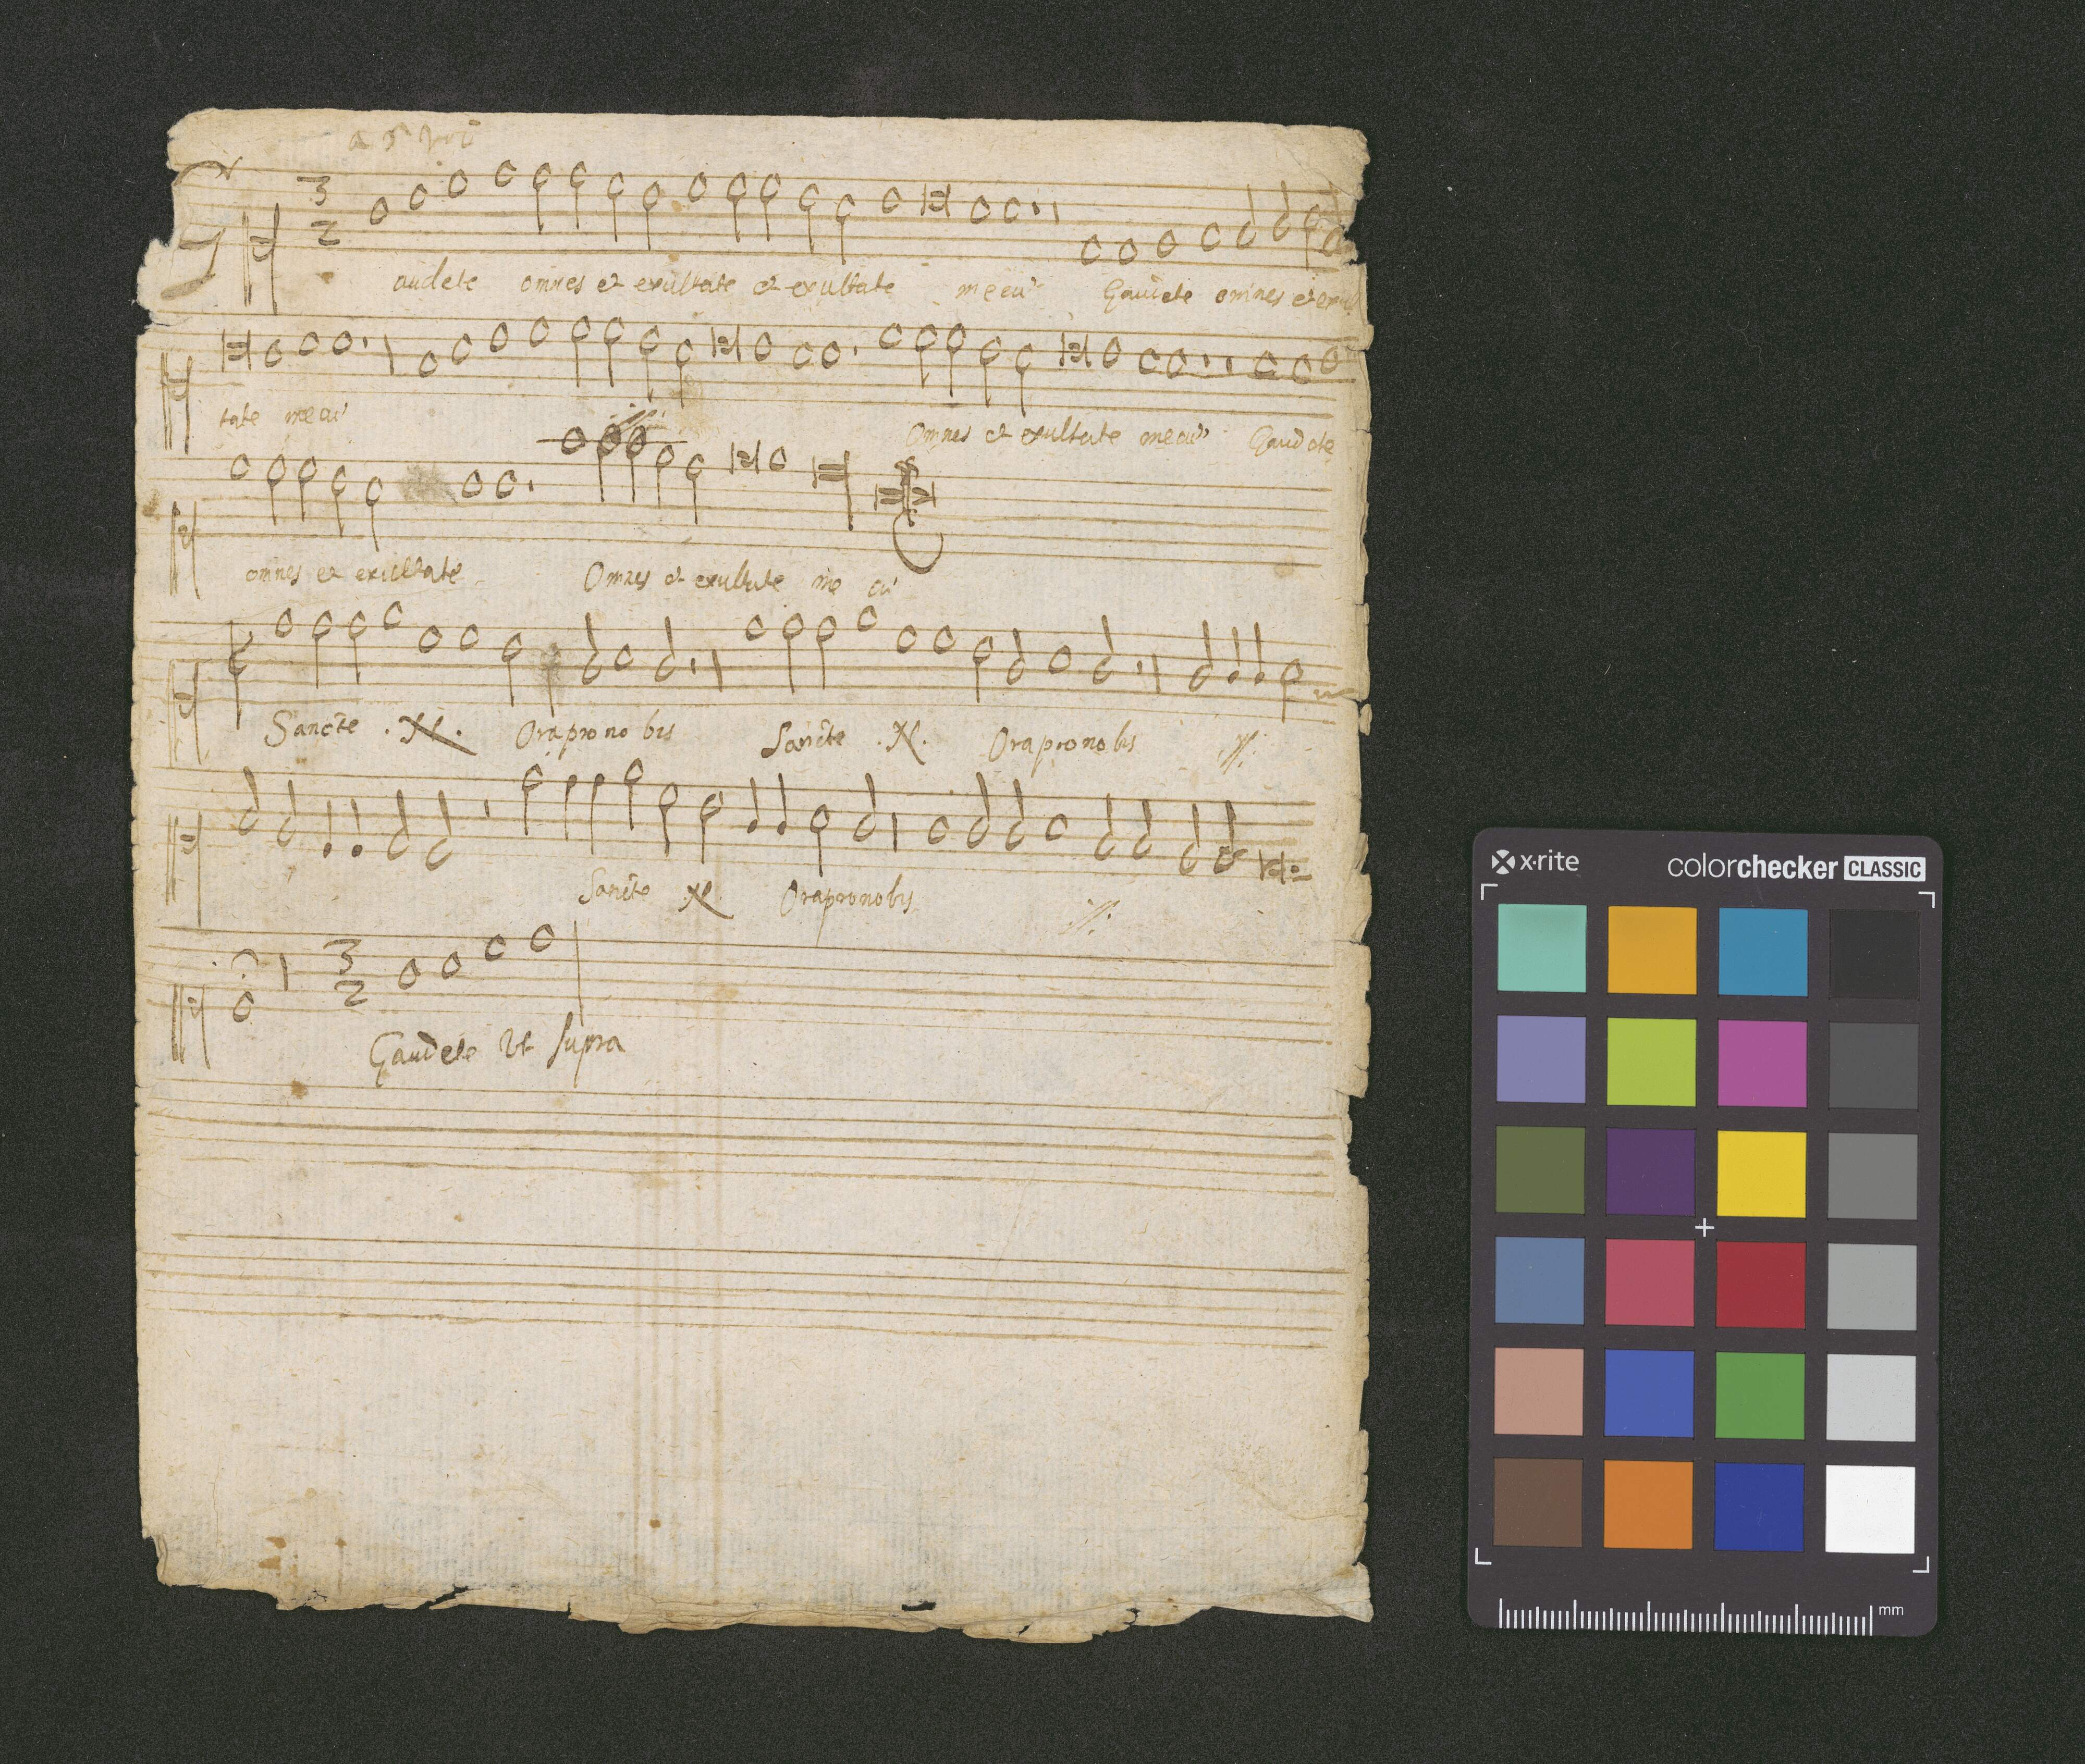 a 3 voci
3
2
Gaudete omnes et exultate et exultate mecū Gaudete omnes et exul
tate mecū Omnes et exultate mecū Gaudete
omnes et exultate Omnes et exultate me cū
Sancte .N. Ora pro no bis Sancte .N. Ora pro nobis .//.
Sancte N. Ora pro nobis .//.
3
2
Gaudete Vt supra
x-rite colorchecker CLASSIC
mm